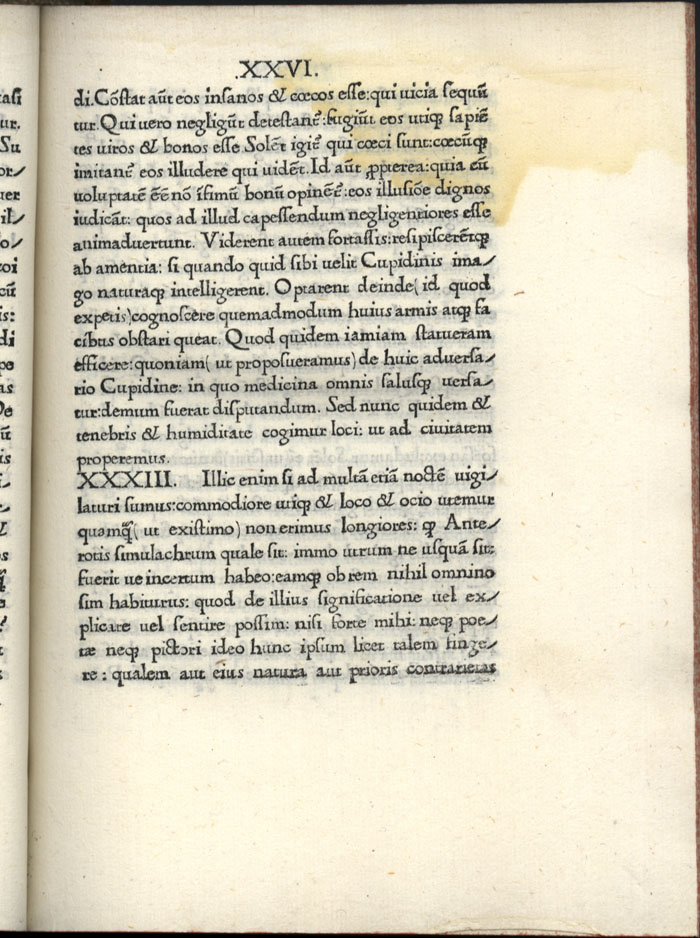 .XXVI.
di. Cōstat aūt eos insanos & cœcos esse: qui uicia sequū
tur. Qui uero negligūt detestant᷑: fugiūt eos utiq; sapiē
tes uiros & bonos esse Solēt igit᷑ qui cœci sunt: cœcūq;
imitant᷑ eos illudere qui uidēt. Id aūt ꝓpterea: quia eū
uoluptatē eē nō ifimū bonū opinet᷑: eos illusiōe dignos
iudicāt: quos ad illud capessendum negligentiores esse
animaduertunt. Viderent autem fortassis: resipiscerētq;
ab amentia: si quando quid sibi uelit Cupidinis ima⸗
go naturaq; intelligerent. Optarent deinde( id quod
expetis)cognoscere quemadmodum huius armis atq; fa
cibus obstari queat. Quod quidem iamiam statueram
efficere: quoniam( ut proposueramus) de huic aduersa⸗
rio Cupidine: in quo medicina omnis salusq; uersa⸗
tur: demum fuerat disputandum. Sed nunc quidem &
tenebris & humiditate cogimur loci: ut ad ciuitatem
properemus.
XXXIII. Illic enim si ad multā etiā noctē uigi⸗
laturi sumus: commodiore utiq; & loco & ocio utemur
quamq̄( ut existimo) non erimus longiores: ꝙ Ante⸗
rotis simulachrum quale sit: immo utrum ne usquā sit:
fuerit ue incertum habeo: eamq; ob rem nihil omnino
sim habiturus: quod de illius significatione uel ex⸗
plicare uel sentire possim: nisi forte mihi: neq; poe⸗
tæ neq; pictori ideo hunc ipsum licet talem finge⸗
re : qualem aut eius natura aut prioris contrarietas